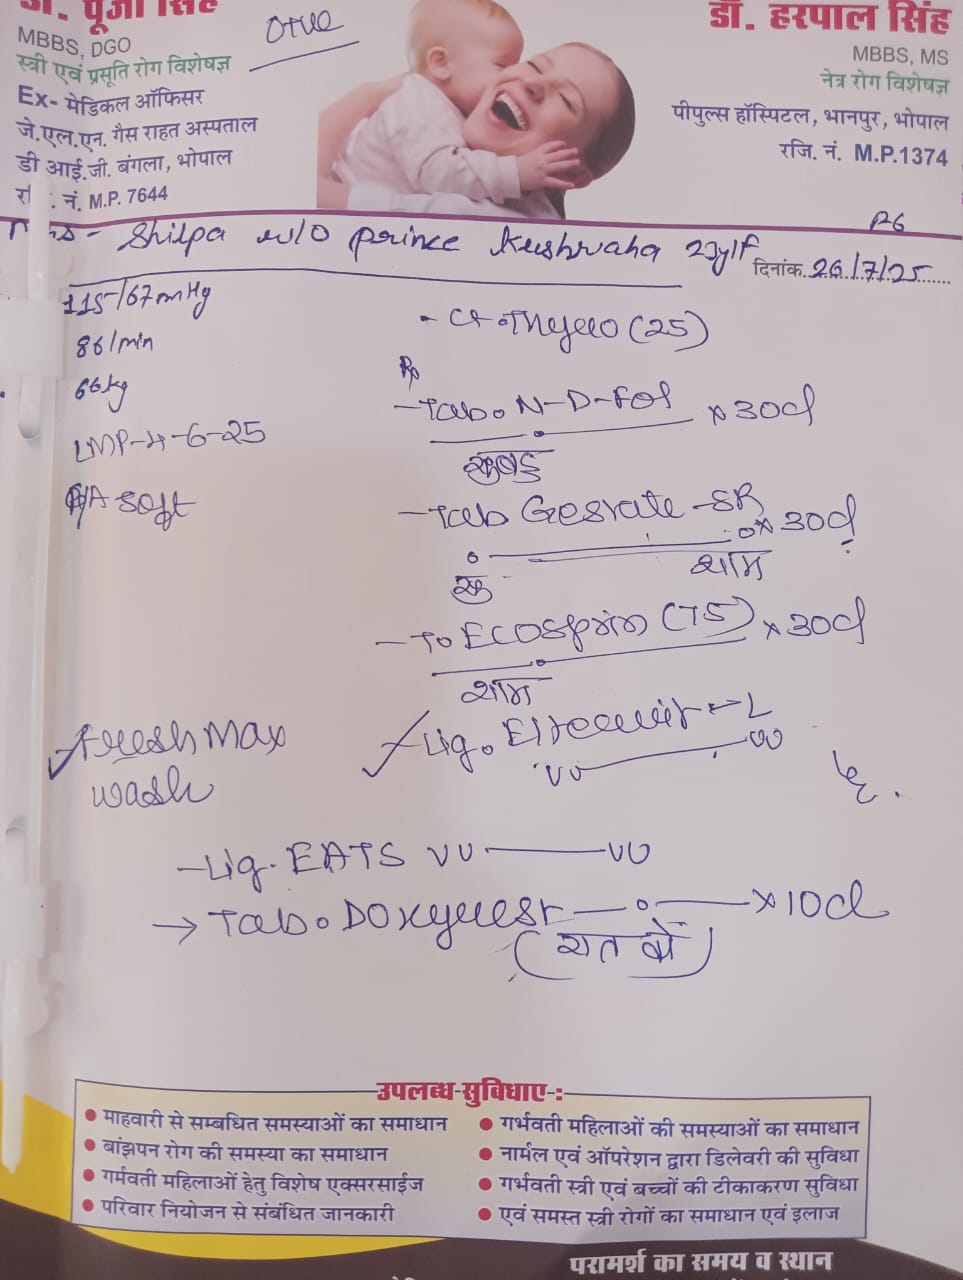 डॉ. पूजा सिंह
MBBS, DGO
स्त्री एवं प्रसूति रोग विशेषज्ञ
Ex- मेडिकल ऑफिसर
जे.एल.एन. गैस राहत अस्पताल
डी आई.जी. बंगला, भोपाल
नं. M.P. 7644
O+ve
डॉ. हरपाल सिंह
MBBS, MS
नेत्र रोग विशेषज्ञ
पीपुल्स हॉस्पिटल, भानपुर, भोपाल
रजि. नं. M.P.1374
Shilpa w/o prince Kushwaha 23y/f
दिनांक. 26/7/25
115/67mmHg
86/min
66kg
LMP-4-6-25
P/A soft
(25)
Rx
-Tab. N-D-Fol x 30d
सुबह
-Tab Gestate-SR x 30d
सु शाम
-T. ECOSprin (75) x 30d
शाम
Lig.
Fresh Max
wash
-Lig. EATS
→ Tab. x 10d
(रात को)
उपलब्ध सुविधाए -:
• माहवारी से सम्बधित समस्याओं का समाधान
• बांझपन रोग की समस्या का समाधान
• गर्मवती महिलाओं हेतु विशेष एक्सरसाईज
• परिवार नियोजन से संबंधित जानकारी
• गर्भवती महिलाओं की समस्याओं का समाधान
• नार्मल एवं ऑपरेशन द्वारा डिलेवरी की सुविधा
• गर्भवती स्त्री एवं बच्चों की टीकाकरण सुविधा
• एवं समस्त स्त्री रोगों का समाधान एवं इलाज
परामर्श का समय व स्थान